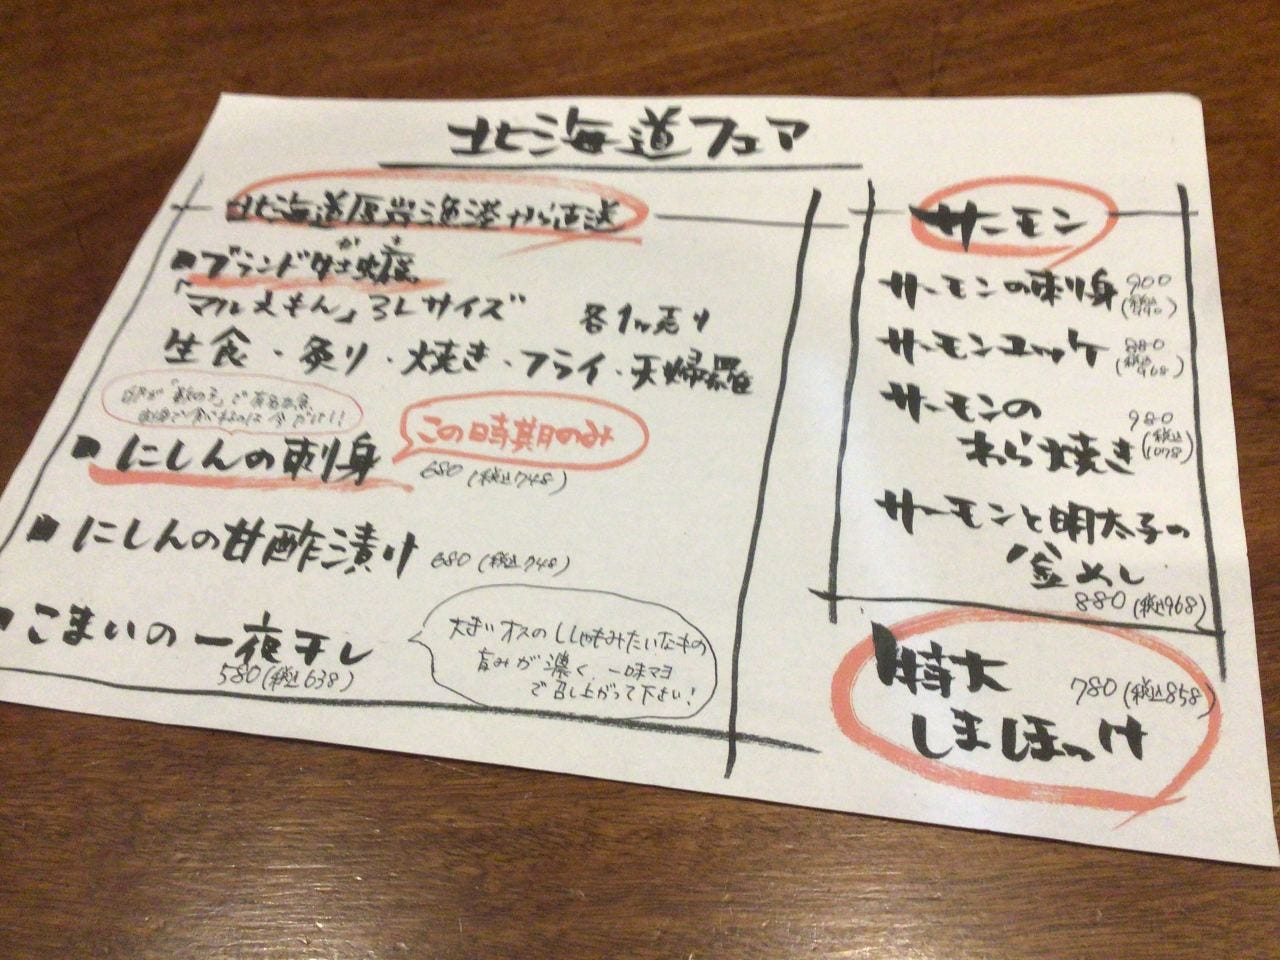 北海道フェア
北海道厚岸漁港から直送
■ブランド牡蠣
かき
「マルえもん」3Lサイズ 各1ヶ売り
生食・炙り・焼き・フライ・天婦羅
卵が「数の子」で有名な魚
刺身で食べれるのは今だけ!!
■にしんの刺身
この時期のみ
680(税込748)
■にしんの甘酢漬け 680(税込748)
■こまいの一夜干し
580(税込638)
大きいオスのししゃもみたいなもの
旨みが濃く、一味マヨ
で召し上がって下さい!
サーモン
サーモンの刺身 900
(税込990)
サーモンユッケ 880
(税込968)
サーモンの
わら焼き 980
(税込1078)
サーモンと明太子の
釜めし
880(税込968)
特大 780(税込858)
しまほっけ